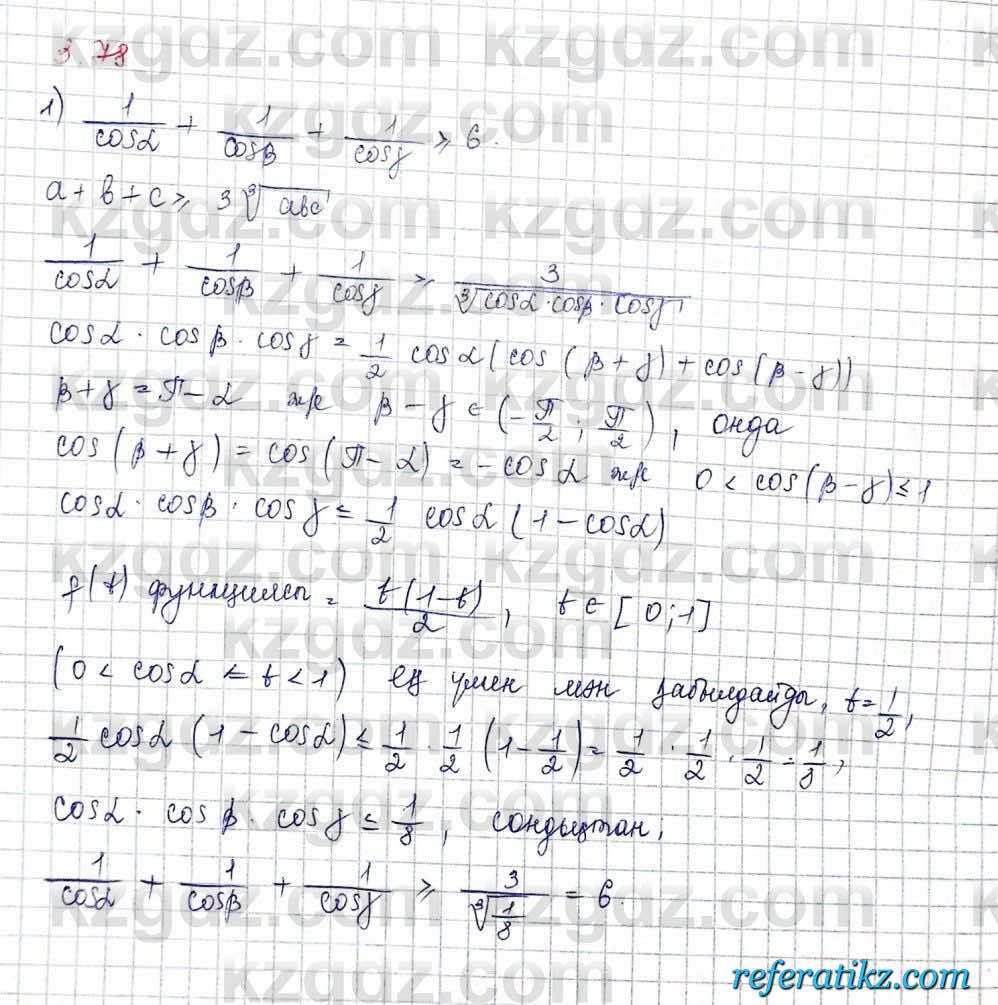 3.78
1) 1/cosα + 1/cosβ + 1/cosγ ≥ 6.
a + b + c ≥ 3∛abc
1/cosα + 1/cosβ + 1/cosγ ≥ 3/∛cosα·cosβ·cosγ
cosα · cosβ · cosγ = 1/2 cosα (cos(β+γ) + cos(β-γ))
β+γ = π-α және β-γ ∈ (-π/2; π/2), онда
cos(β+γ) = cos(π-α) = -cosα және 0 < cos(β-γ) ≤ 1
cosα · cosβ · cosγ ≤ 1/2 cosα (1-cosα)
f(t) функциясы = t(1-t)/2, t ∈ [0;1]
(0 < cosα = t < 1) ең үлкен мән қабылдайды, t = 1/2,
1/2 cosα (1-cosα) ≤ 1/2 · 1/2 (1-1/2) = 1/2 · 1/2 · 1/2 = 1/8,
cosα · cosβ · cosγ ≤ 1/8, сондықтан,
1/cosα + 1/cosβ + 1/cosγ ≥ 3/∛1/8 = 6.
kzgdz.com
referatikz.com